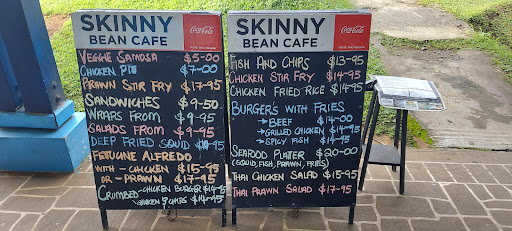 SKINNY
BEAN CAFE
Coca-Cola
VEGGIE SAMOSA $5-00
CHICKEN PIE $7-00
PRAWN STIR FRY $17-95
SANDWICHES $9-50
WRAPS FROM $9-95
SALADS FROM $9-95
DEEP FRIED SQUID
FETUCINE ALFREDO
WITH - CHICKEN $15-95
OR - PRAWN $17-95
CRUMBED - CHICKEN BURGER $14-95
CHICKEN & CHIPS $14-95
SKINNY
BEAN CAFE
Coca-Cola
FISH AND CHIPS $13-95
CHICKEN STIR FRY $14-95
CHICKEN FRIED RICE $14-95
BURGER'S WITH FRIES
→ BEEF $14-00
→ GRILLED CHICKEN $14-95
→ SPICY FISH $14-95
SEAFOOD PLATTER $20-00
(SQUID, FISH, PRAWN, FRIES)
THAI CHICKEN SALAD $15-95
THAI PRAWN SALAD $17-95